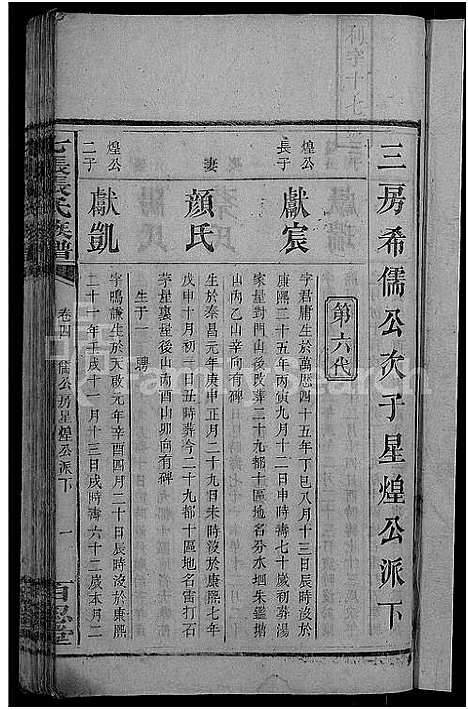 三房希儒公次子星煌公派下
第六代
煌公
長子
獻宸
字君庸生於萬歷四十五年丁巳八月十三日辰時沒於
康熙二十五年丙寅九月十二日申時壽七十歲初葬湯
家星對門山後改葬二十九都十區地名分水坳朱鑑塘
山丙乙山辛向有碑
妻
顏氏
生於泰昌元年庚申正月二十九日未時沒於康熙七年
戊申十月初一日丑時葬今二十九都十區地名雷打石
茅屋裏屋後山內酉山卯向有碑
生子一 聘
煌公
二子
獻凱
字鳴謙生於天啟元年辛酉四月二十日辰時沒於康熙
二十一年壬戌十一月十三日戌時壽六十二歲本月二
七張張氏族譜
卷四
儒公房星煌公派下
一
百忍堂